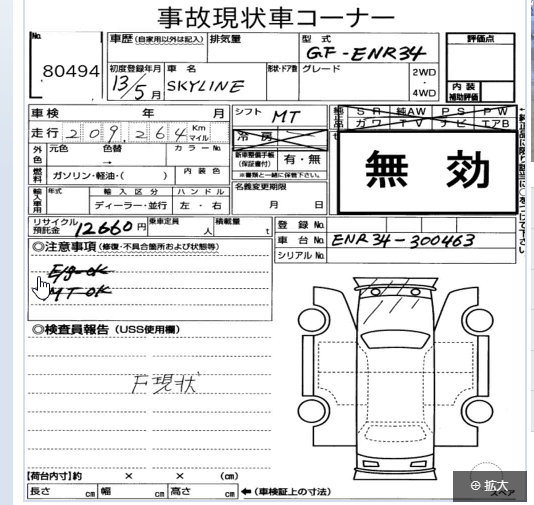 事故現状車コーナー
No. 80494
車歴 (自家用以外は記入) 排気量 型式 GF-ENR34 評価点
初度登録年月 13/5月 車名 SKYLINE 形状・ドア数 グレード 2WD・4WD 内装補助評価
車検 年 月 シフト MT 純正部品 SR 純AW PS PW
走行 209,264 Km マイル 冷房 ガワ TV ナビ エアB
外色 元色 色替 → カラーNo. 新車整備手帳(保証書付) 有・無
※書類と一緒に保管下さい。
無効
燃料 ガソリン・軽油・( ) 内装色 名義変更期限 月 日
輸入車用 年式 輸入区分 ディーラー・並行 ハンドル 左・右
リサイクル預託金 12660円 乗車定員 人 積載量 t 登録No.
車台No. ENR34-300463
シリアルNo.
◎注意事項 (修復・不具合箇所および状態等)
E/g-OK
MT OK
◎検査員報告 (USS使用欄)
F現状
【荷台内寸】約 × × (cm)
長さ cm 幅 cm 高さ cm ←(車検証上の寸法)
スペア
拡大